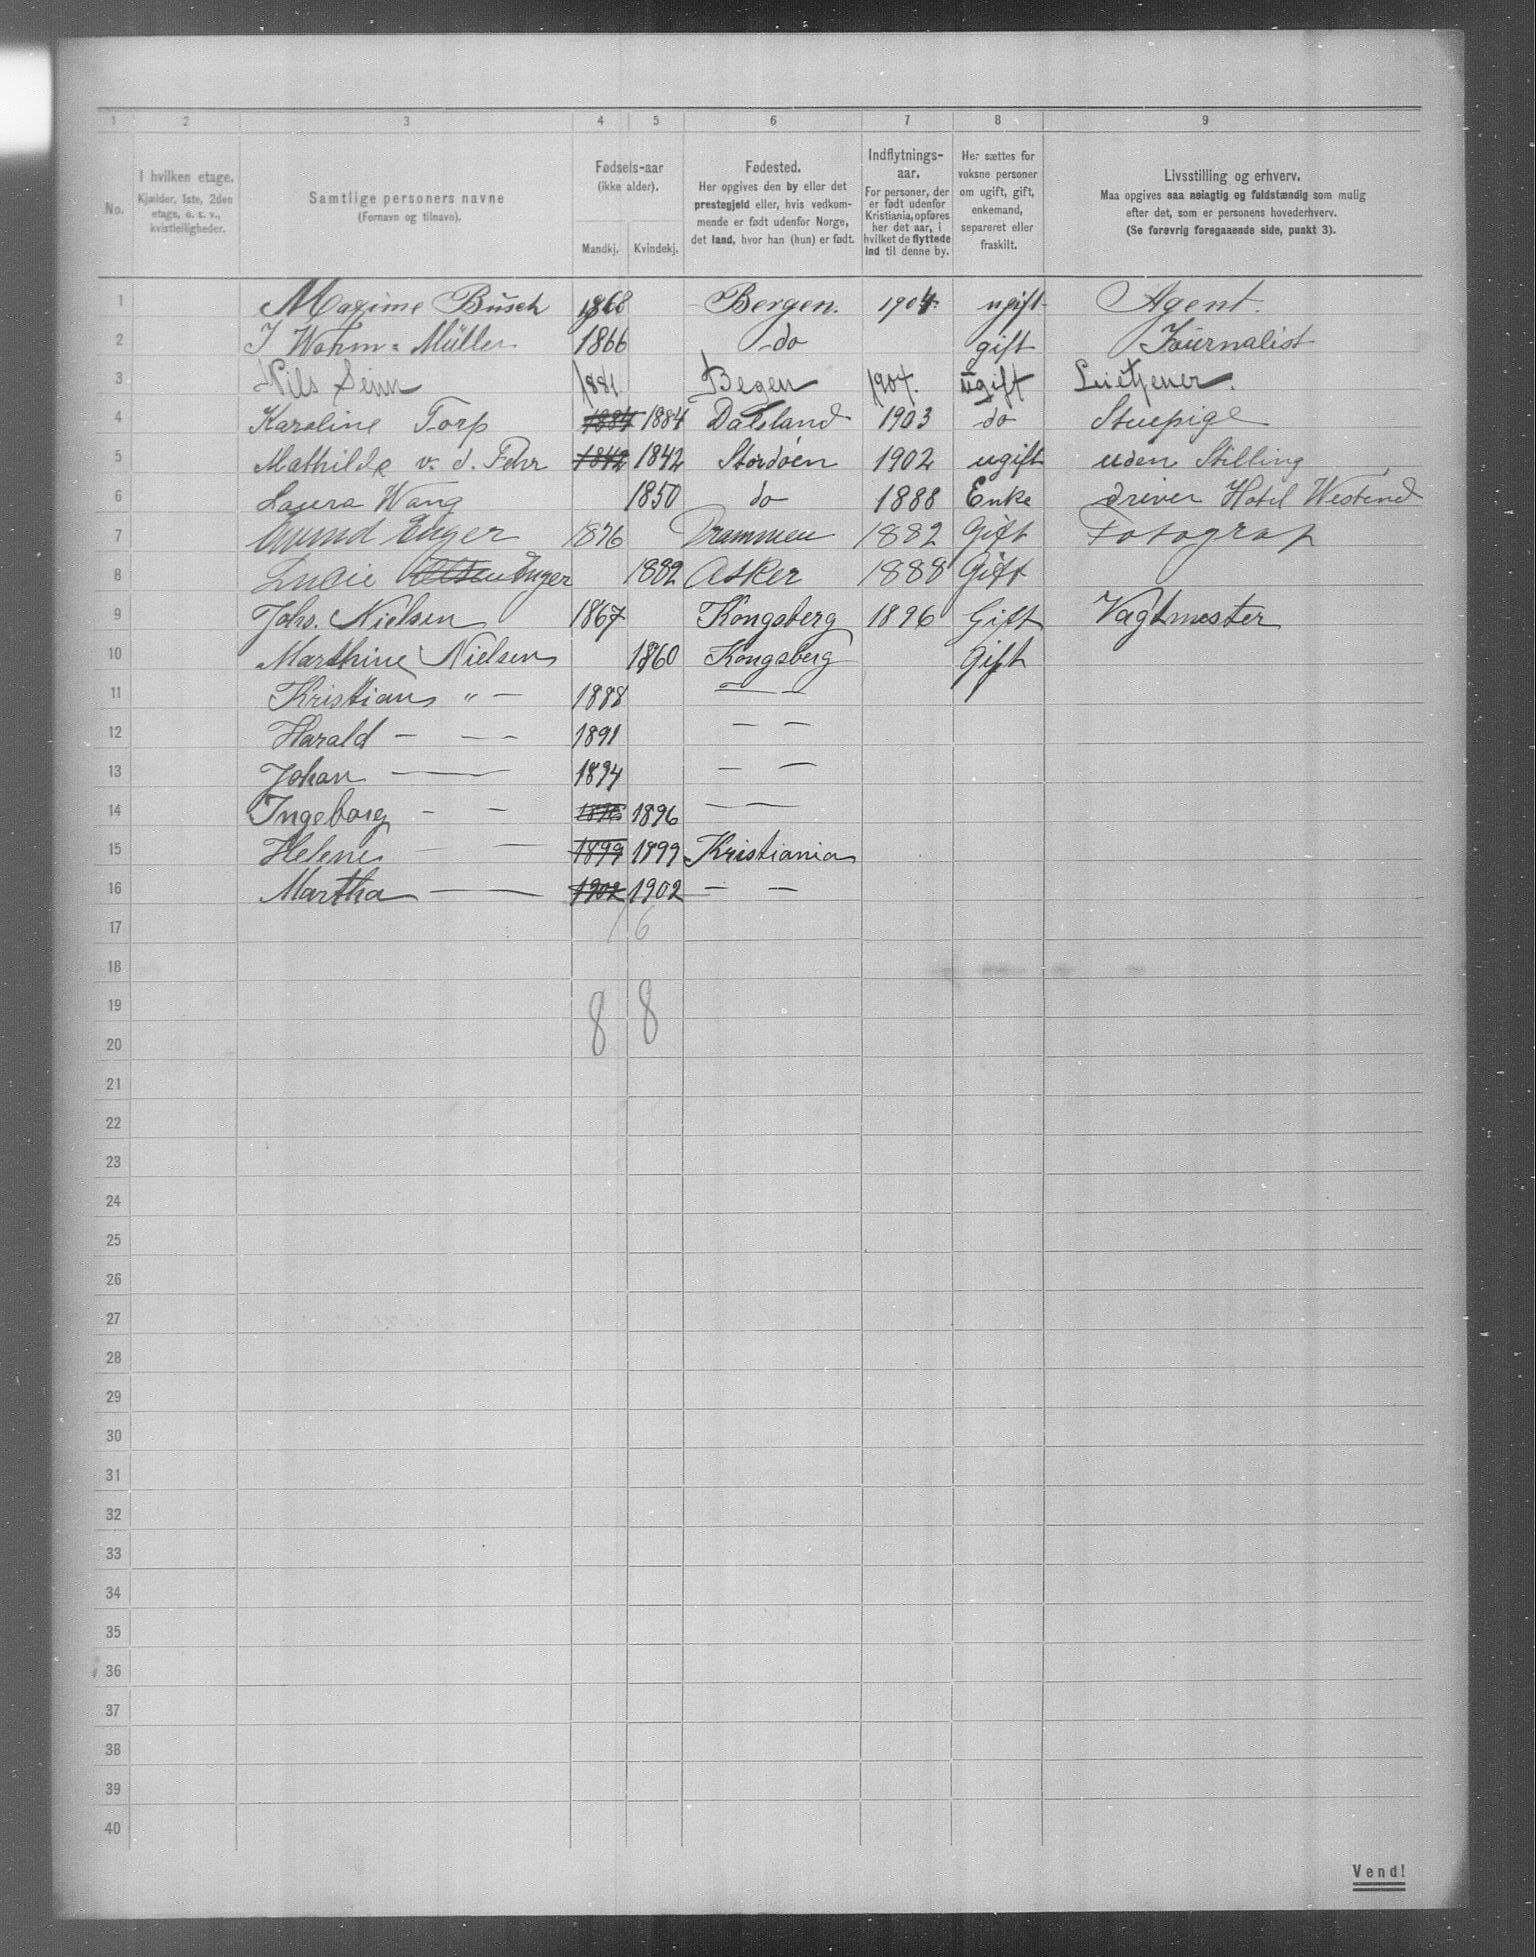 1 2 3 4 5 6 7 8 9
No.
I hvilken etage.
Kjælder, 1ste, 2den
etage, o. s. v.,
kvistleiligheder.
Samtlige personers navne
(Fornavn og tilnavn).
Fødsels-aar
(ikke alder).
Mandkj. Kvindekj.
Fødested.
Her opgives den by eller det
prestegjeld eller, hvis vedkom-
mende er født udenfor Norge,
det land, hvor han (hun) er født.
Indflytnings-
aar.
For personer, der
er født udenfor
Kristiania, opføres
her det aar, i
hvilket de flyttede
ind til denne by.
Her sættes for
voksne personer
om ugift, gift,
enkemand,
separeret eller
fraskilt.
Livsstilling og erhverv.
Maa opgives saa nøiagtig og fuldstændig som mulig
efter det, som er personens hovederhverv.
(Se forøvrig foregaaende side, punkt 3).
1 Maxime Büsch 1868 Bergen. 1904 ugift Agent.
2 J Müller 1866 do gift Journalist
3 Nils 1881 Begen 1904. ugift
4 Karoline Torp 1884 1884 Dalsland 1903 do Stuepige
5 Mathilde v. d. Fehr 1842 1842 Stordøen 1902 ugift uden Stilling
6 Laura Wang 1850 do 1888 Enke driver Hotel Westend
7 Amund Enger 1876 Drammen 1882 Gift Fotograf
8 Lucie Olsen Enger 1882 Asker 1888 Gift
9 Johs. Nielsen 1867 Kongsberg 1896 Gift Vagtmester
10 Marthine Nielsen 1860 Kongsberg Gift
11 Kristian " — 1888 — —
12 Harald — — — 1891 — —
13 Johan — 1894 — —
14 Ingeborg — — 1896 1896 — —
15 Helene — — 1899 1899 Kristiania
16 Martha — — 1902 1902 — —
17 16
18
19 8 8
20
21
22
23
24
25
26
27
28
29
30
31
32
33
34
35
36
37
38
39
40
Vend!